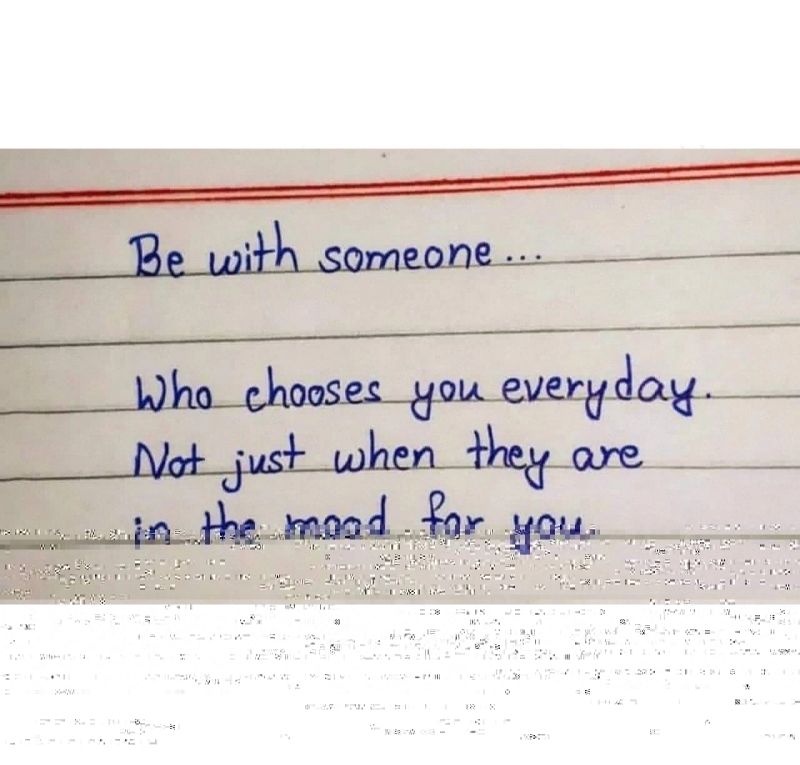 Be with someone...
Who chooses you everyday.
Not just when they are
in the mood for you.